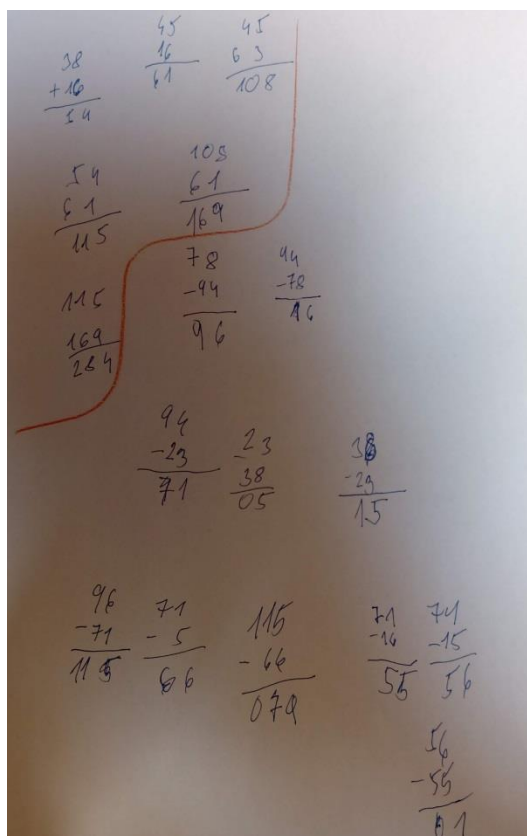 38
+16
54
45
16
61
45
63
108
54
61
115
108
61
169
115
169
284
78
-94
96
94
-78
16
94
-23
71
-23
38
05
38
-23
15
96
-71
115
71
-5
66
115
-66
079
71
-16
55
71
-15
56
56
-55
01